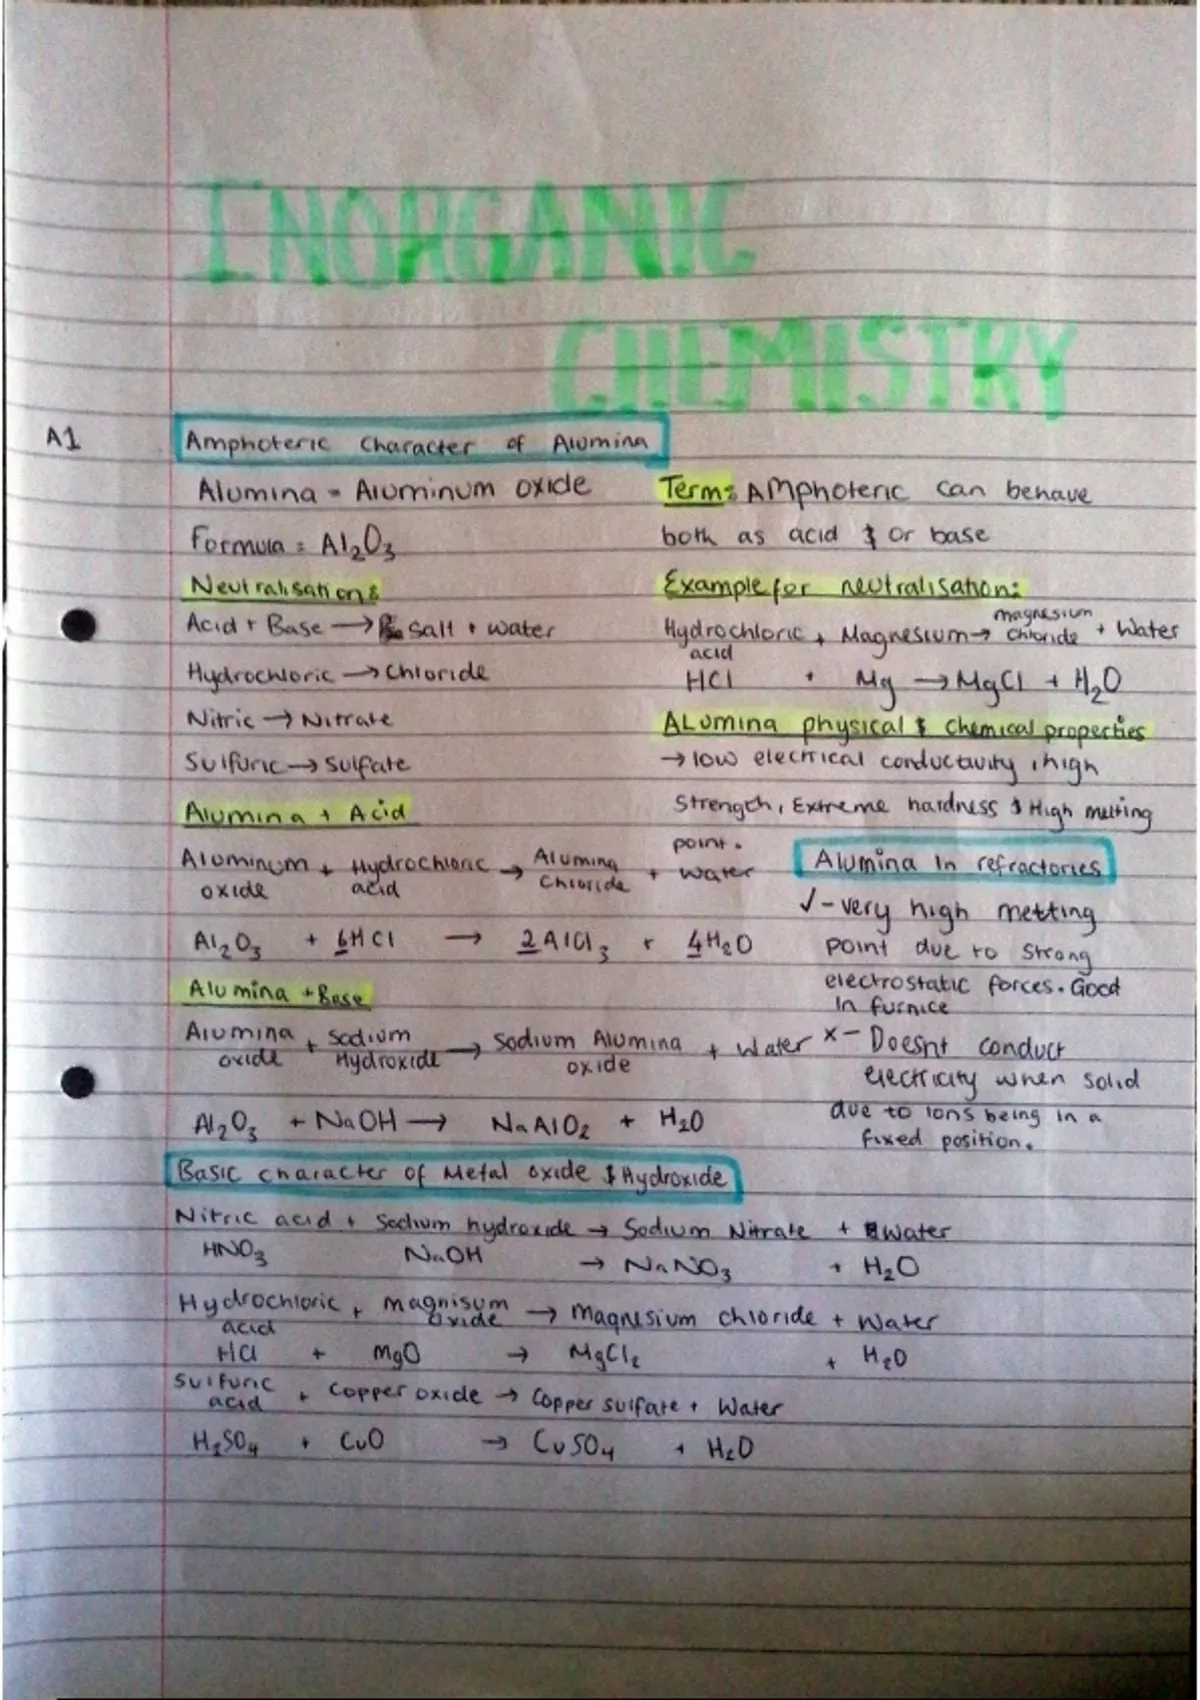 INORGANIC
CHEMISTRY
A1
Amphoteric Character of Alumina
Alumina = Aluminum oxide
Formula = Al₂O₃
Neutralisation:
Acid + Base → Salt + water
Hydrochloric → Chloride
Nitric → Nitrate
Sulfuric → Sulfate
Term: Amphoteric can behave
both as acid & or base
Example for neutralisation:
Hydrochloric acid + Magnesium → magnesium chloride + Water
HCl + Mg → MgCl + H₂O
Alumina physical & chemical properties
→ low electrical conductivity, high
Strength, Extreme hardness & High melting
point.
Alumina + Acid
Aluminum oxide + Hydrochloric acid → Alumina Chloride + Water
Al₂O₃ + 6HCl → 2AlCl₃ + 4H₂O
Alumina + Base
Alumina oxide + Sodium Hydroxide → Sodium Alumina oxide + Water
Al₂O₃ + NaOH → NaAlO₂ + H₂O
Alumina in refractories
✓ - very high metting
point due to strong
electrostatic forces. Good
in furnice
x - Doesnt conduct
electricity when solid
due to ions being in a
fixed position.
Basic character of Metal oxide & Hydroxide
Nitric acid + Sodium hydroxide → Sodium Nitrate + Water
HNO₃ NaOH → NaNO₃ + H₂O
Hydrochloric acid + magnisum oxide → Magnesium chloride + Water
HCl + MgO → MgCl₂ + H₂O
Sulfuric acid + Copper oxide → Copper sulfate + Water
H₂SO₄ + CuO → CuSO₄ + H₂O